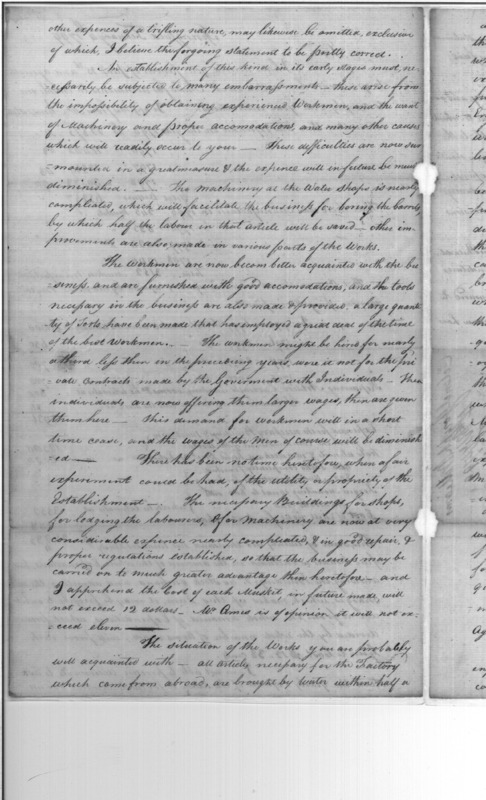 other expences of a trifling nature, may likewise be omitted, exclusive
of which, I believe the forgoing statement to be prittly correct.
An establishment of this kind in its early stages must, ne-
cessarily be subjected to many embarrassments - these arise from
the impossibility of obtaining experienced Workmen, and the want
of Machinery and proper accomodations, and many other causes
which will readily occur to your — These difficulties are now sur-
mounted in a great measure & the expence will in future be much
diminished. — The Machinery at the Water Shops is nearly
compleated, which will facilitate the business for boring the barrels
by which half the labour in that article will be saved - other im-
provements are also made in various parts of the Works.
The Workmen are now becom better acquainted with the bu-
siness, and are furnished with good accomodations, and the tools
necessary in the business are also made & provided, a large quanti-
ty of Tools have been made that has employed a great deal of the time
of the best Workmen. — The workmen might be hired for nearly
a third less then in the preceeding years, were it not for the pri-
vate Contracts made by the Government with Individuals - These
individuals are now offering them larger wages, then are given
them here — This demand for workmen will in a short
time cease, and the wages of the Men of course will be diminish
-ed — There has been no time heretofore, when a fair
experement could be had, of the utility or propriety of the
Establishment —. The necessary Buildings for shops,
for lodging the labourers, & for Machinery are now at very
considerable expence nearly compleated, & in good repair, &
proper regulations established, so that the business may be
carried on to much greater advantage then heretofore - and
I apprehend the Cost of each Musket, in future made will
not exceed 12 dollars - Mr Ames is of opinion it will not ex-
-ceed eleven —
The situation of the Works you are probably
well acquainted with - all articles necessary for the Factory
which came from abroad, are brought by Water within half a